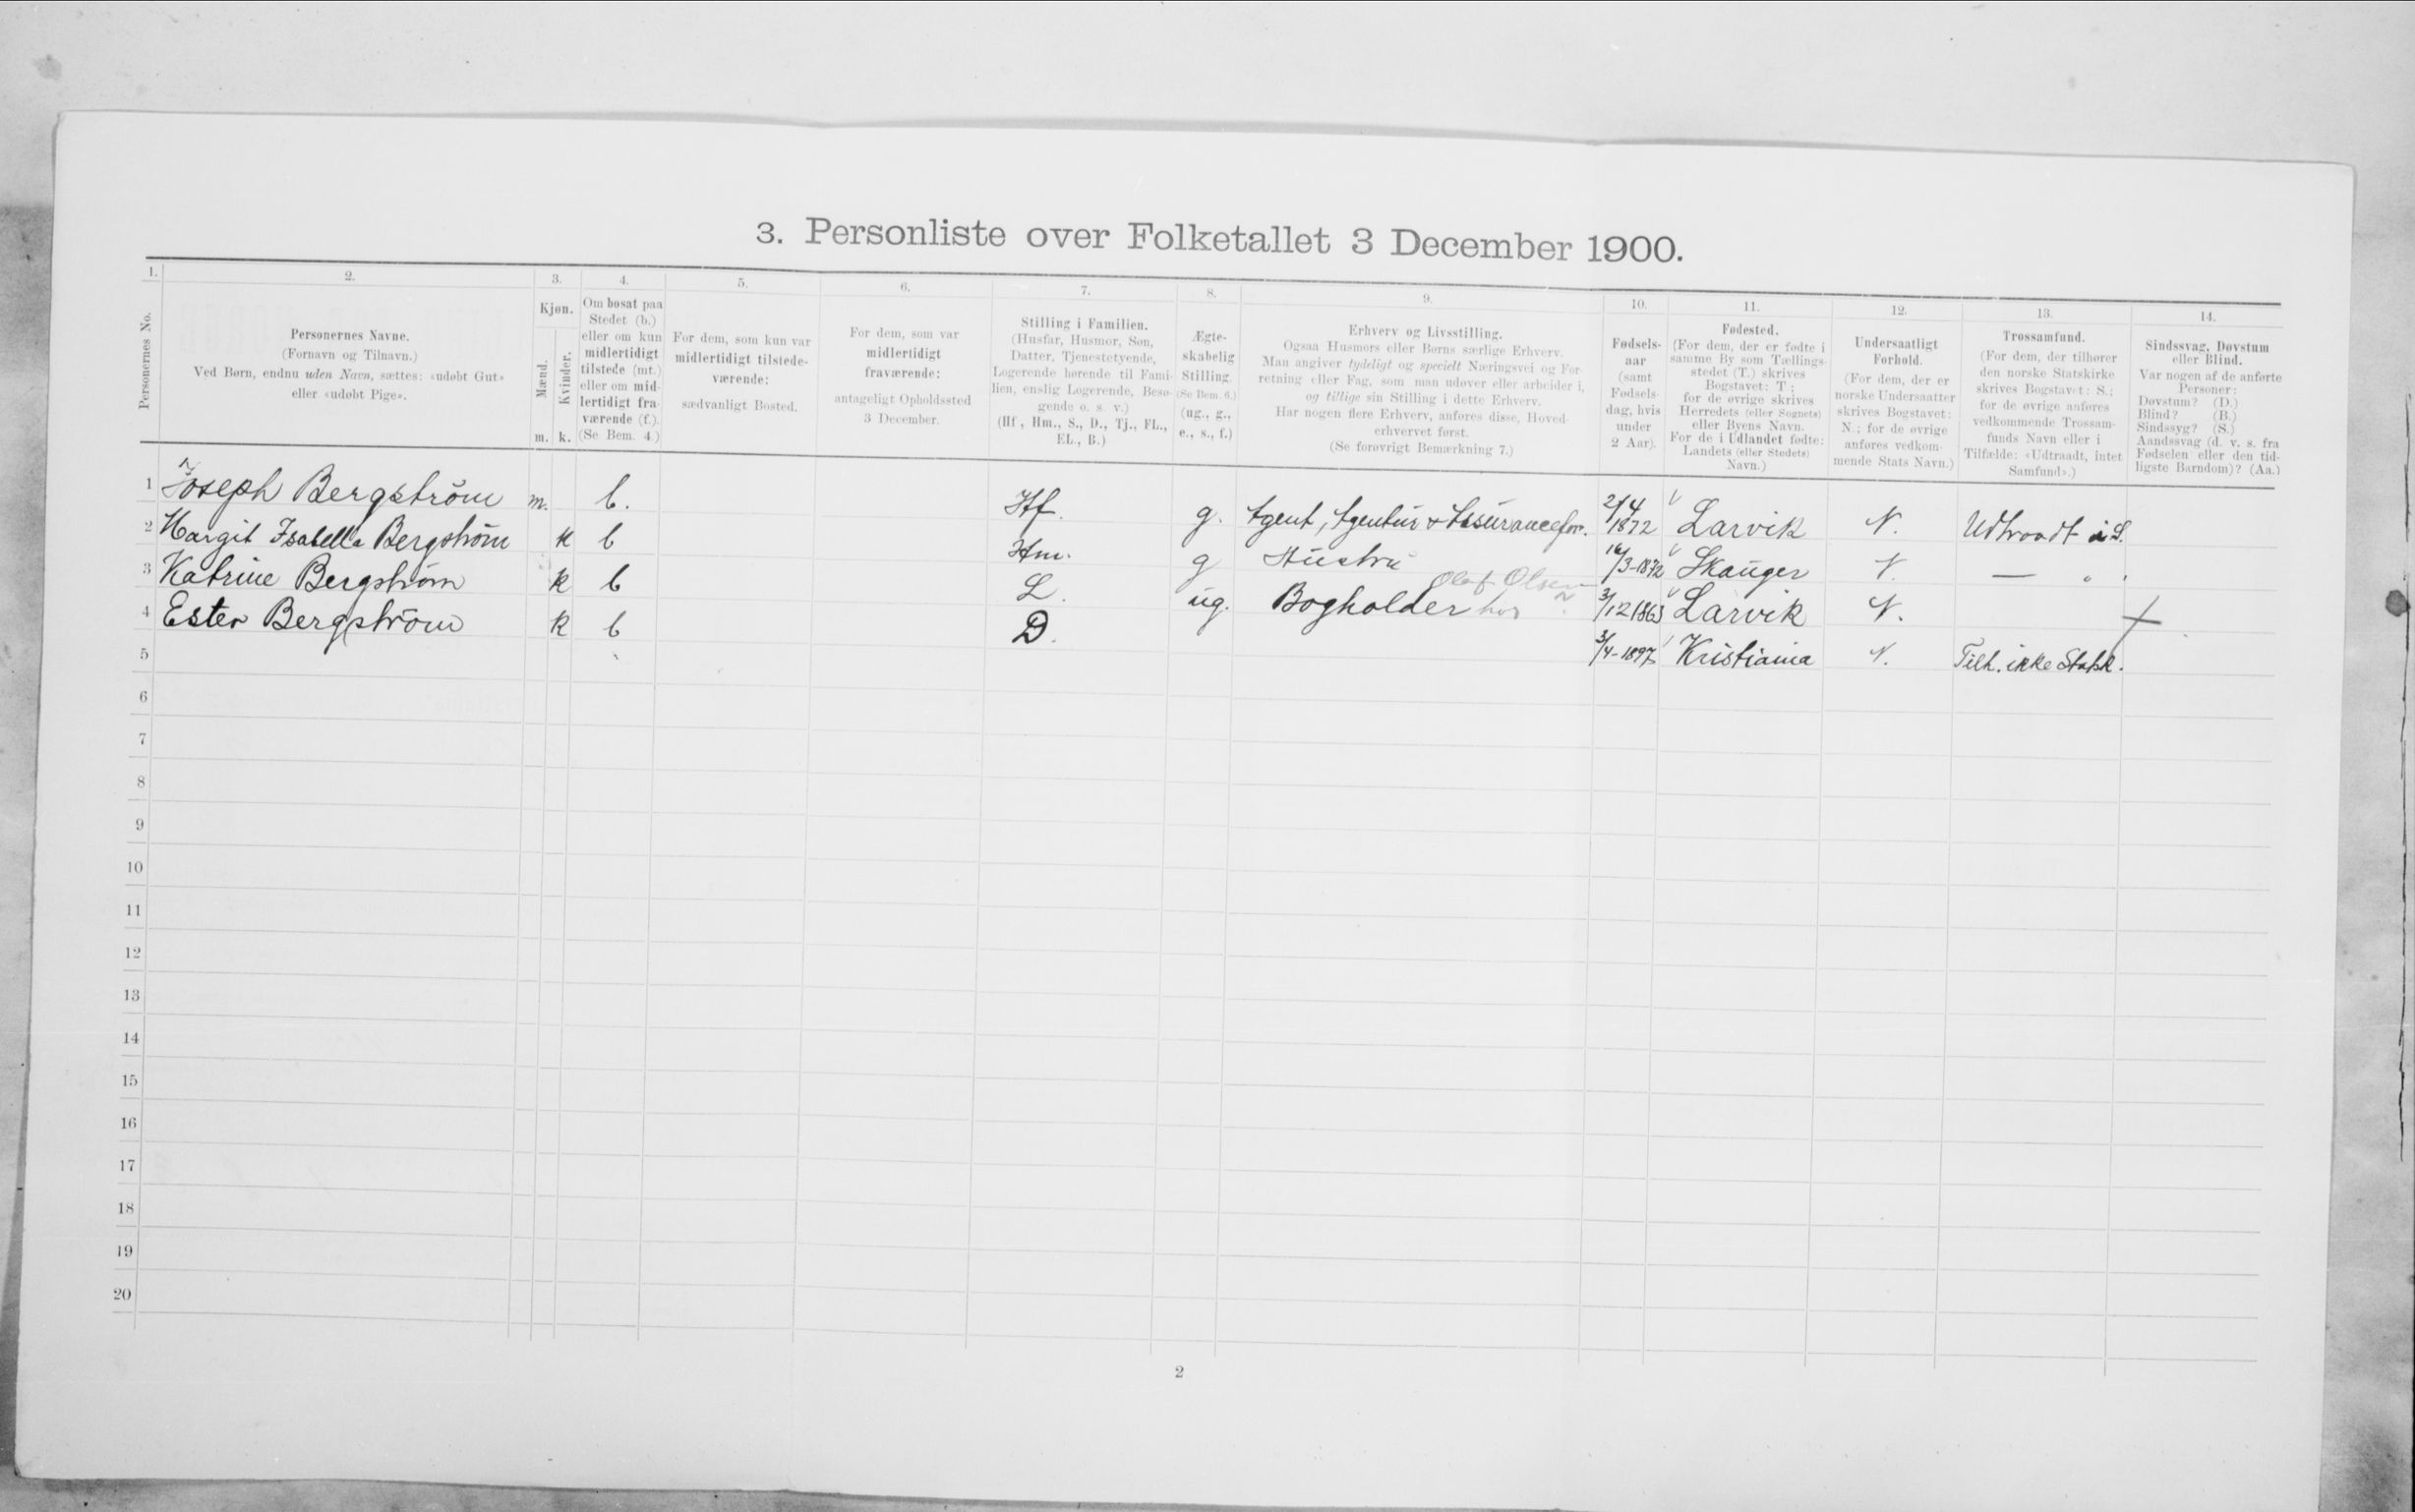 3. Personliste over Folketallet 3 December 1900.
1. 2. 3. 4. 5. 6. 7. 8. 9. 10. 11. 12. 13. 14.
Personernes No.
Personernes Navne.
(Fornavn og Tilnavn.)
Ved Børn, endnu uden Navn, sættes: «udøbt Gut»
eller «udøbt Pige».
Kjøn.
Mænd.
Kvinder.
m. k.
Om bosat paa
Stedet (b.)
eller om kun
midlertidigt
tilstede (mt.)
eller om mid-
lertidigt fra-
værende (f.).
(Se Bem. 4.)
For dem, som kun var
midlertidigt tilstede-
værende:
sædvanligt Bosted.
For dem, som var
midlertidigt
fraværende:
antageligt Opholdssted
3 December.
Stilling i Familien.
(Husfar, Husmor, Søn,
Datter, Tjenestetyende,
Logerende hørende til Fami-
lien, enslig Logerende, Besø-
gende o. s. v.)
(Hf., Hm., S., D., Tj., FL.,
EL., B.)
Ægte-
skabelig
Stilling.
(Se Bem. 6.)
(ug., g.,
e., s., f.)
Erhverv og Livsstilling.
Ogsaa Husmors eller Børns særlige Erhverv.
Man angiver tydeligt og specielt Næringsvei og For-
retning eller Fag, som man udøver eller arbeider i,
og tillige sin Stilling i dette Erhverv.
Har nogen flere Erhverv, anføres disse, Hoved-
erhvervet først.
(Se forøvrigt Bemærkning 7.)
Fødsels-
aar
(samt
Fødsels-
dag, hvis
under
2 Aar).
Fødested.
(For dem, der er fødte i
samme By som Tællings-
stedet (T.) skrives
Bogstavet: T;
for de øvrige skrives
Herredets (eller Sognets)
eller Byens Navn.
For de i Udlandet fødte:
Landets (eller Stedets)
Navn.)
Undersaatligt
Forhold.
(For dem, der er
norske Undersaatter
skrives Bogstavet:
N.; for de øvrige
anføres vedkom-
mende Stats Navn.)
Trossamfund.
(For dem, der tilhører
den norske Statskirke
skrives Bogstavet: S.;
for de øvrige anføres
vedkommende Trossam-
funds Navn eller i
Tilfælde: «Udtraadt, intet
Samfund».)
Sindssvag, Døvstum
eller Blind.
Var nogen af de anførte
Personer:
Døvstum? (D.)
Blind? (B.)
Sindssyg? (S.)
Aandssvag (d. v. s. fra
Fødselen eller den tid-
ligste Barndom)? (Aa.)
1 Joseph Bergström m. b. Hf. g. Agent, Agentur & Assuranceforr. 2/4 1872 Larvik N. Udtraadt
2 Margit Isabella Bergström k b Hm. g Hustru 16/3-1872 Skauger N. — "
3 Katrine Bergström k b L. ug. Bogholder hos Olaf Olsen 3/12 1863 Larvik N.
4 Ester Bergström k b D. 3/4-1897 Kristiania N. Tilh. ikke Statsk.
5
6
7
8
9
10
11
12
13
14
15
16
17
18
19
20
2